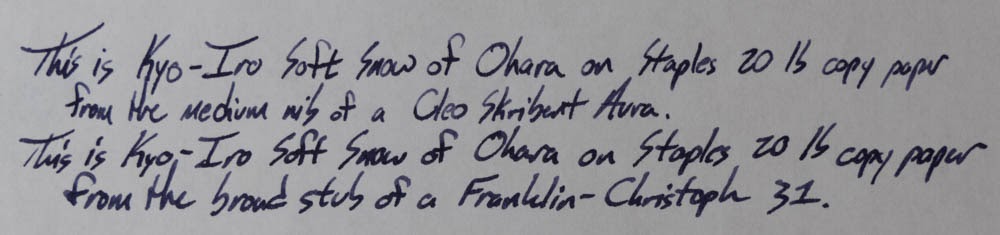 This is Kyo-Iro Soft Snow of Ohara on Staples 20 lb copy paper
from the medium nib of a Cleo Skribent Aura.
This is Kyo-Iro Soft Snow of Ohara on Staples 20 lb copy paper
from the broad stub of a Franklin-Christoph 31.